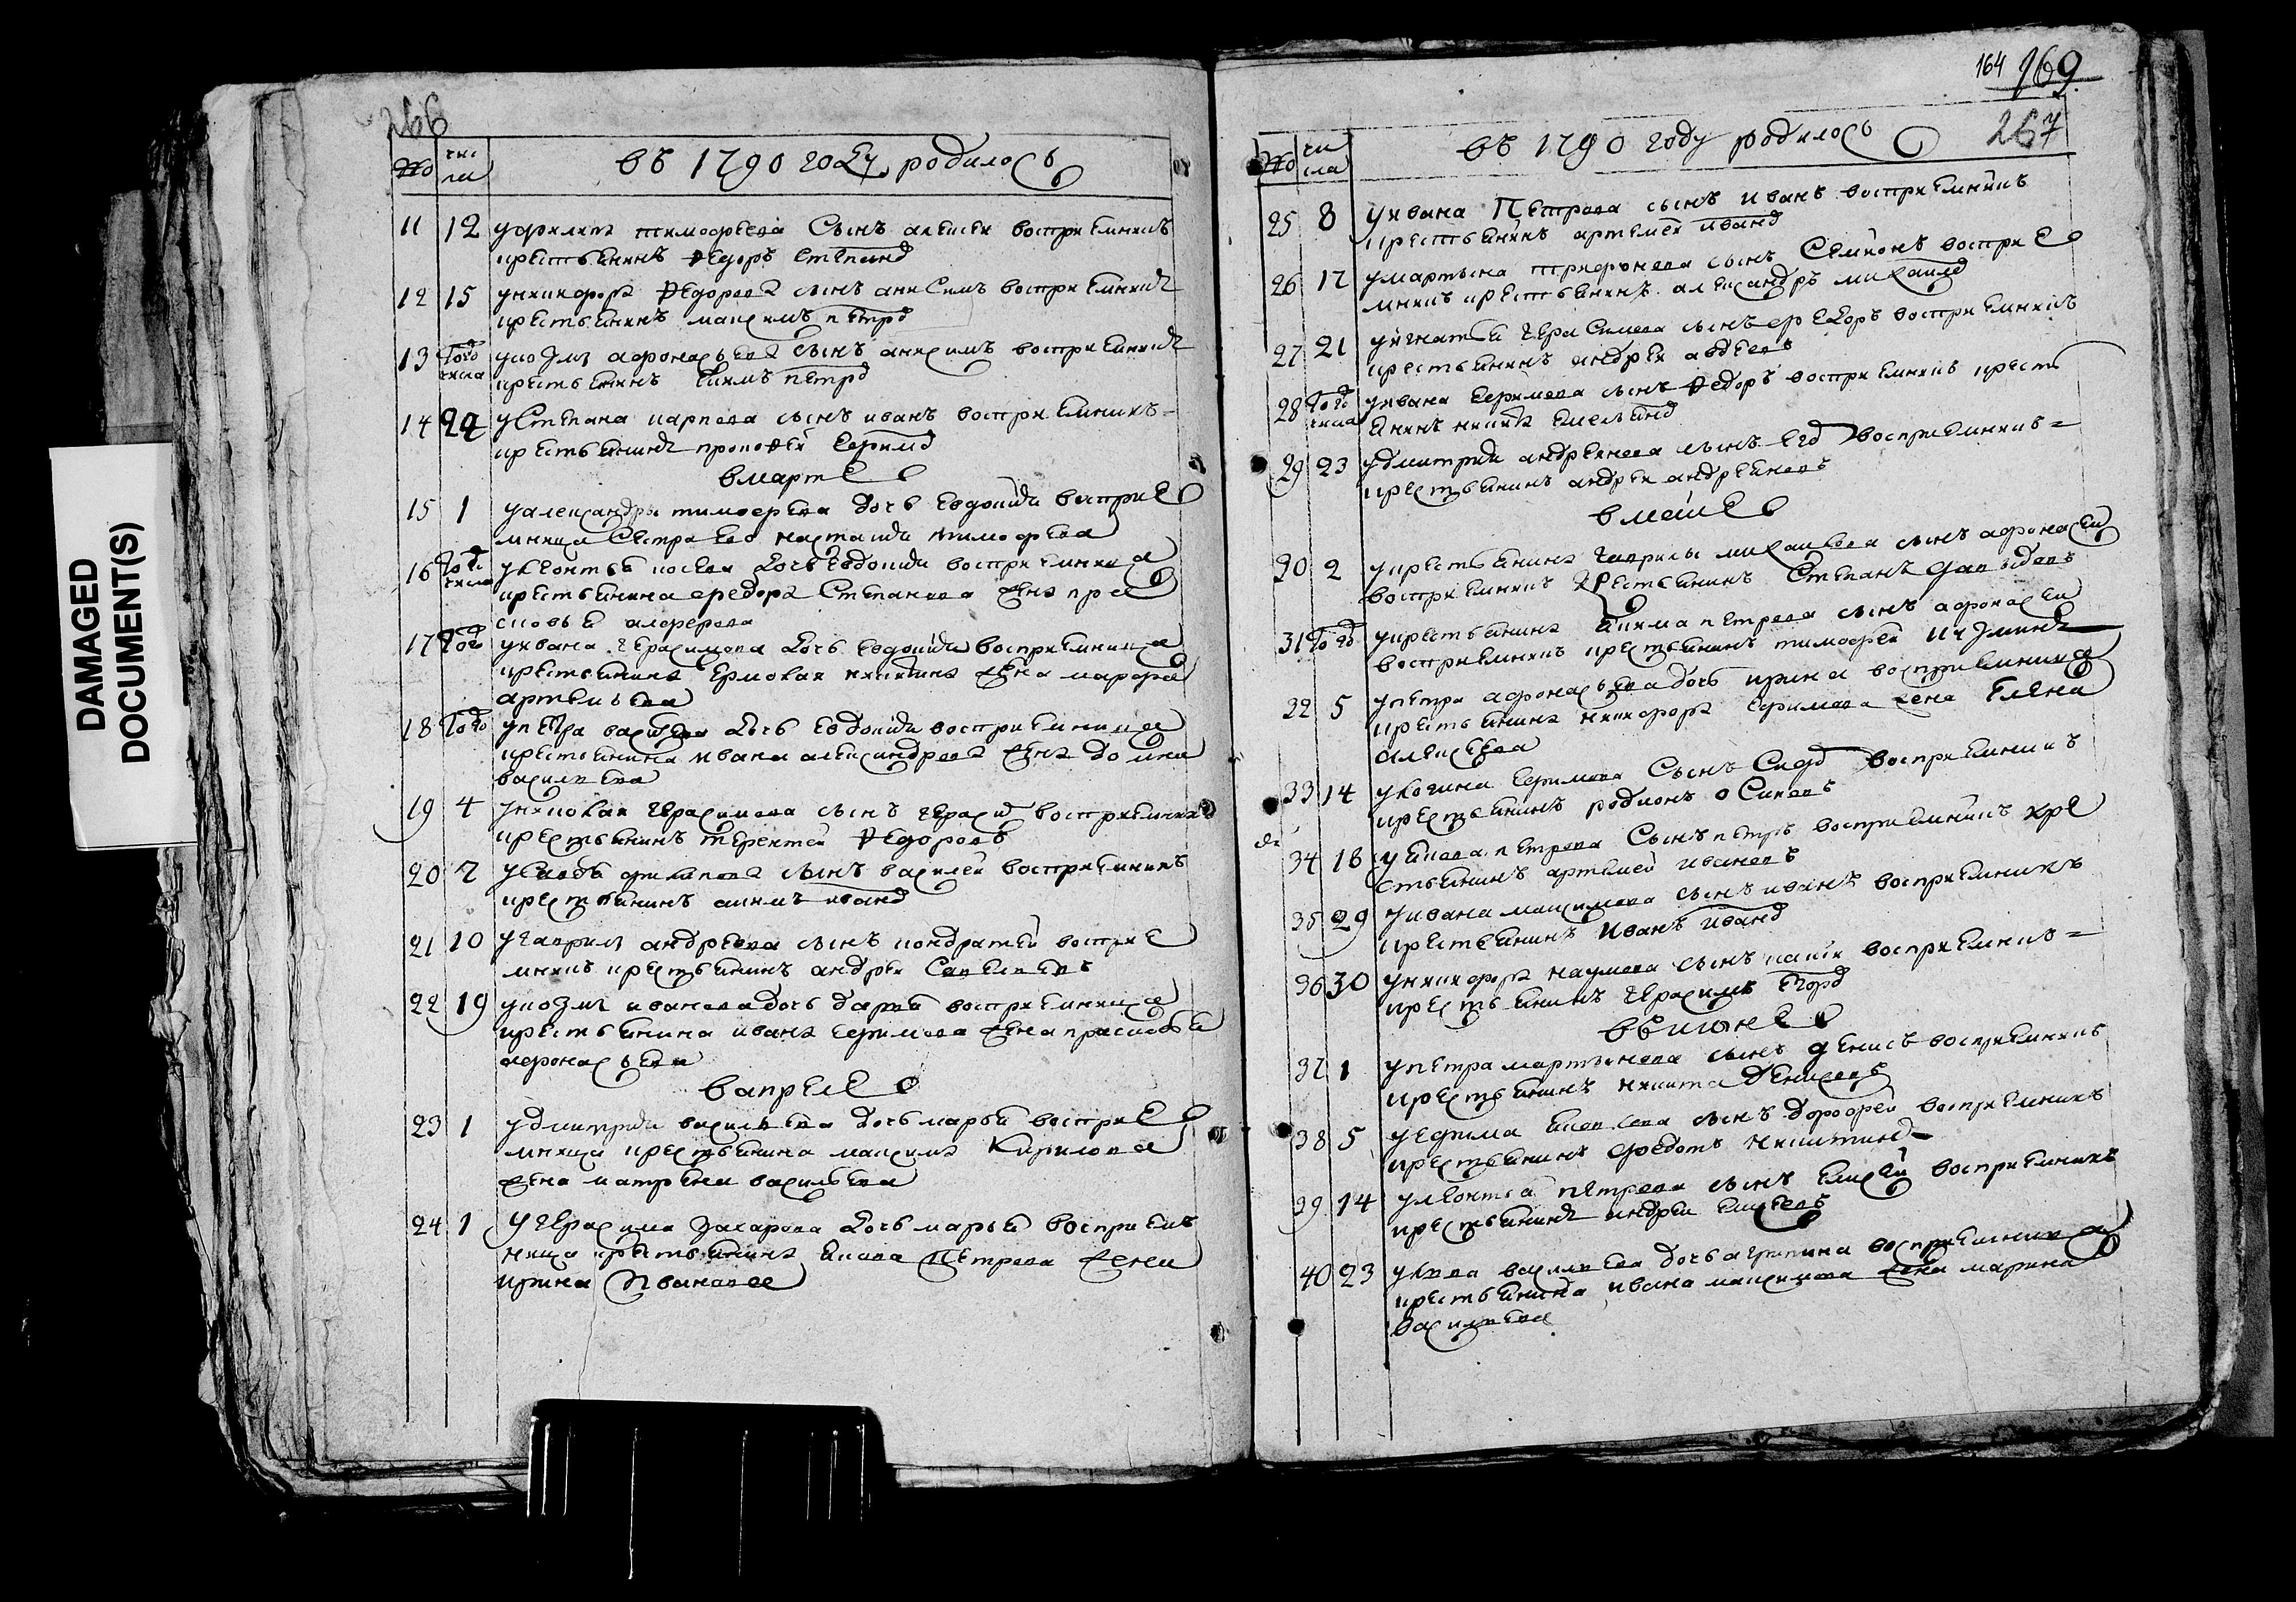 DAMAGED
DOCUMENT(S)
266
№ чис ла въ 1790 году родилось
11 12 уфилипа тимофеева Сынъ алексеи восприемникъ
крестьянинъ Федоръ степанд
12 15 уникифора Федорова сынъ анисимъ восприемникъ
крестьянинъ максимъ петрд
13 Того числа укозмы афонасьева сынъ анисимъ восприемникъ
крестьянинъ екимъ петрд
14 22 уСтепана карпова сынъ иванъ восприемникъ=
крестьянинъ прокофей ефимд
вмарте
15 1 уалександры тимофеева дочь Евдокиа восприе
мница Сестра ево настасиа тимофеева
16 Того числа улеонтьа дочь Евдокиа восприемница
крестьянина федора Степанова жена пра
сковья алферова
17 Того увана герасимова дочь Евдокиа восприемница
крестьянина Ермолая никитина жена марфа
артемьева
18 Того упетра васильева дочь Евдокиа восприемница
крестьянина ивана александрова жена домна
васильева
19 4 униколая герасимова сынъ гераси восприемникъ
крестьянинъ терентеи Федоровъ
20 7 уСавы филипова сынъ василеи восприемникъ
крестьянинъ акимъ иванд
21 10 угаврилы андреева сынъ кондратеи восприе
мникъ крестьянинъ андреи Савельевъ
22 19 укозмы иванова дочь дарья восприемница
крестьянина ивана ефимова жена прасковья
афонасьева
вапреле
23 1 удмитриа васильева дочь марья восприе
мница крестьянина максима Кирилова
жена матрена васильева
24 1 угерасима захарова дочь марья восприем
ница крестьянина якова Петрова жена
ирина Иванова
164 169
267
№ чи сла въ 1790 году родилось
25 8 уивана Петрова сынъ Иванъ восприемникъ
крестьянинъ артемеи иванд
26 17 умартына трифонова сынъ Семионъ восприе
мникъ крестьянинъ александръ михаилд
27 21 уигнатьа герасимова сынъ федоръ восприемникъ
крестьянинъ андреи авдеевъ
28 Того числа увана ефимова сынъ Федоръ восприемникъ кресть
янинъ никита емельянд
29 23 удмитриа андреянова сынъ егд восприемникъ=
крестьянинъ андреи андреяновъ
вмаие
30 2 укрестьянина гаврилы михаилова сынъ афонасеи
восприемникъ крестьянинъ Степанъ давыдовъ
31 Того укрестьянина акима петрова сынъ афонасеи
восприемникъ крестьянинъ тимофеи кузминд
32 5 упетра афонасьева дочь ирина восприемница
крестьянина никифора ефимова жена Елена
алексеева
33 14 улогина ефимова Сынъ Сидд восприемникъ
крестьянинъ родионъ осиповъ
34 18 уякова петрова Сынъ петръ восприемникъ кре
стьянинъ артемеи ивановъ
35 29 уивана максимова сынъ иванъ восприемникъ
крестьянинъ Иванъ иванд
36 30 уникифора наумова сынъ исакии восприемникъ=
крестьянинъ герасимъ егорд
въиюне
37 1 упетра мартынова сынъ денисъ восприемникъ
крестьянинъ никита денисовъ
38 5 уефима яковлева сынъ дорофеи восприемникъ
крестьянинъ федотъ никитинд
39 14 улеонтьа петрова сынъ елисеи восприемникъ
крестьянинъ андреи елисеевъ
40 23 ульва васильева дочь агрипина восприемница
крестьянина ивана максимова жена марина
васильева